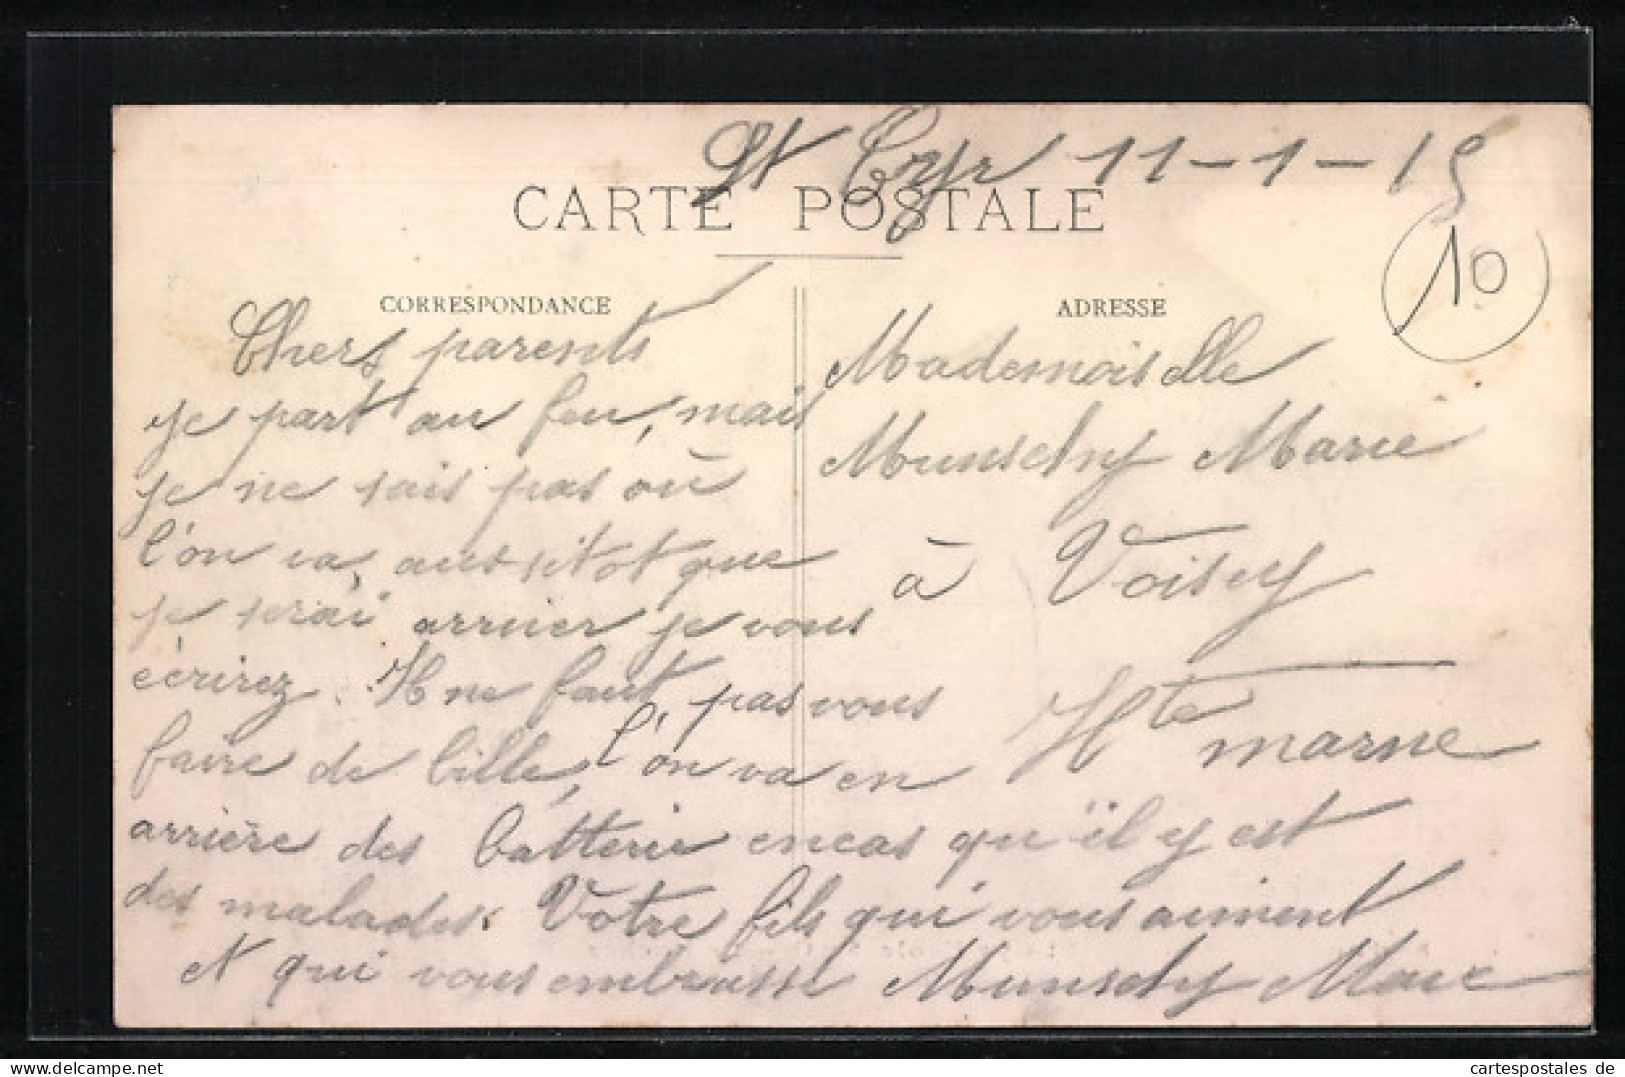 St Cyr 11-1-15
CARTE POSTALE
10
CORRESPONDANCE
ADRESSE
Chers parents
je part au feu, mais
je ne sais pas où
l'on va, aussitot que
je serai arriver je vous
écrirez. Il ne faut pas vous
faire de bille, l'on va en
arrière des batterie encas qu'il y est
des malades. Votre fils qui vous aiment
et qui vous embrasse Munschy Marc
Mademoiselle
Munschy Marie
à Voisey
Hte marne
cartespostales de